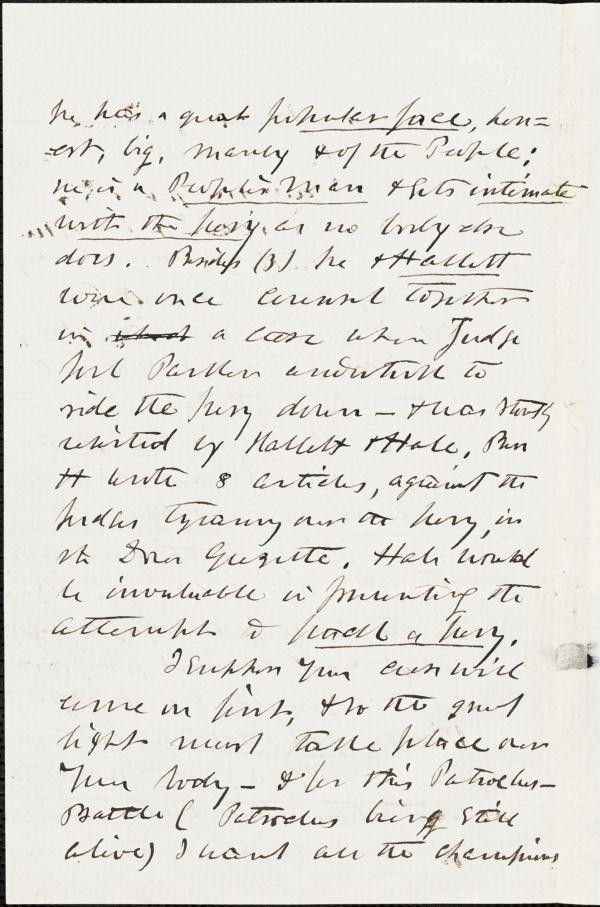 he has a great popular face, hon=
=est, big, manly & of the People;
he is a People's Man & gets intimate
with the jury as no body else
does. Besides (3) he & Hallett
were once counsel together
in which a case when Judge
Joel Parker undertook to
ride the jury down — & was stoutly
resisted by Hallett & Hale, Ben
H wrote 8 articles, against the
Judges tyranny over the jury, in
the Dover Gazette. Hale would
be invaluable in preventing the
attempt to pack a jury.
I suppose your case will
come on first, & so the great
fight must take place over
your body — & for this Patroclus-
Battle (Patroclus being still
alive) I want all the champions